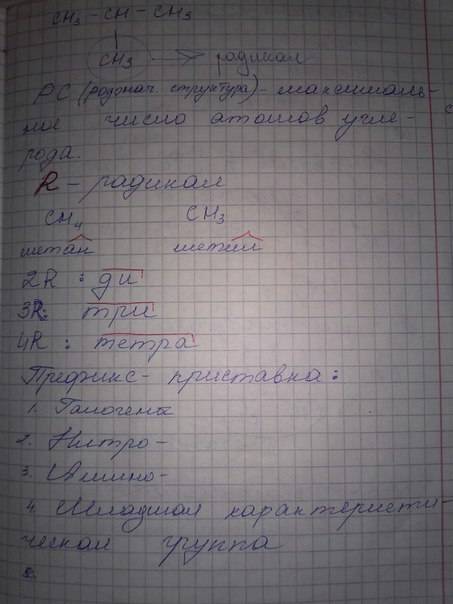 CH₃ - CH - CH₃
CH₃ → радикал
РС (родонач. структура) - максималь-
ное число атомов угле-
рода.
R - радикал
CH₄ CH₃
метан метил
2R : ди
3R: три
4R : тетра
Префикс - приставка:
1. Галогена
2. Нитро -
3. Амино -
4. Младшая характеристи-
ческая группа
5.